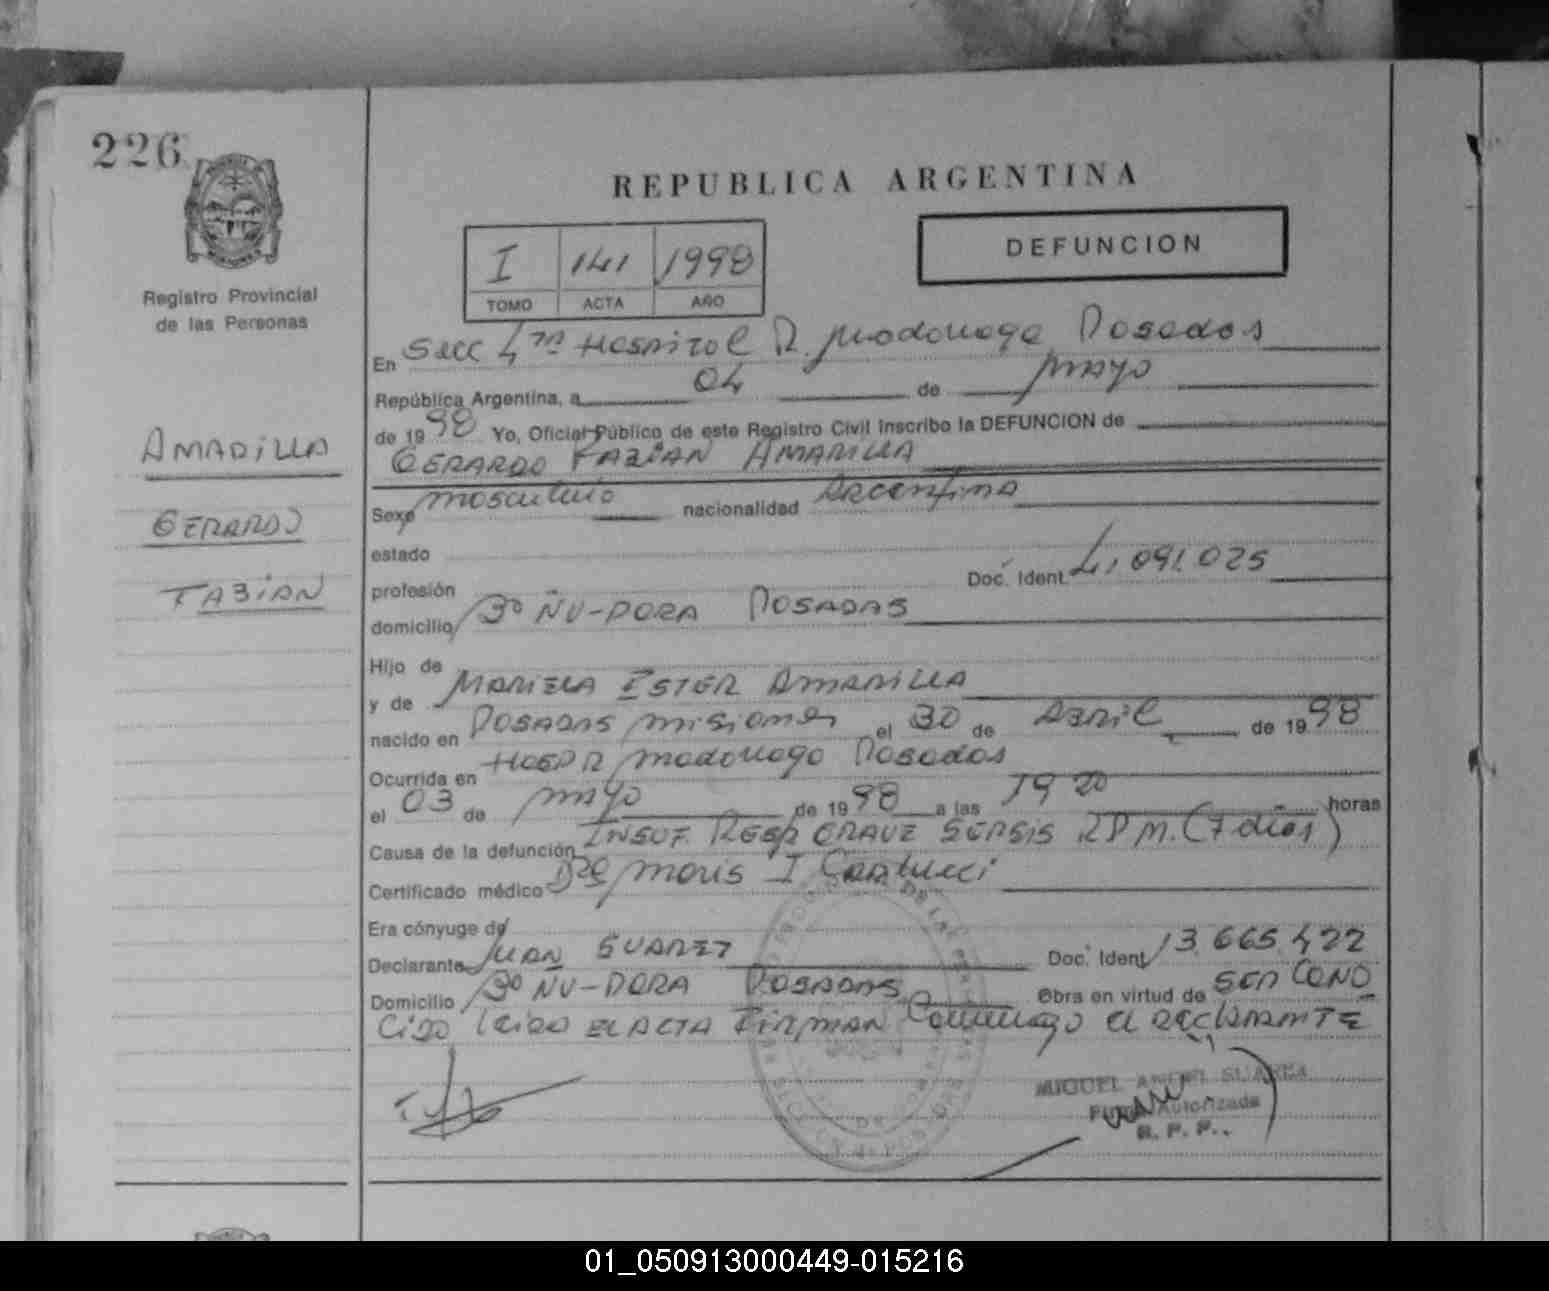 226
REPUBLICA ARGENTINA
I 141 1998
TOMO ACTA AÑO
DEFUNCION
Registro Provincial
de las Personas
AMARILLA
GERARDO
FABIAN
En Secc 4ta Hospital R. Madariaga Posadas
República Argentina, a 04 de mayo
de 1998 Yo, Oficial Público de este Registro Civil Inscribo la DEFUNCION de
GERARDO FABIAN AMARILLA
Sexo masculino nacionalidad Argentina
estado
profesión Doc. Ident. 41.091.025
domicilio Bº ÑU-PORA POSADAS
Hijo de
y de MARIELA ESTER AMARILLA
nacido en POSADAS misiones el 30 de Abril de 1998
Ocurrida en HOSP R Madariaga Posadas
el 03 de mayo de 1998 a las 19 20 horas
Causa de la defunción INSUF. RESP GRAVE SEPSIS RPM. (7 días)
Certificado médico Dra Moris I
Era cónyuge de
Declarante JUAN SUAREZ Doc. Ident. 13.665.422
Domicilio Bº ÑU-PORA POSADAS Obra en virtud de SER CONO
CIDO leida EL ACTA FIRMAN conmigo el declarante
MIGUEL ANGEL SUAREZ
Firma Autorizada
R. P. P.
01_050913000449-015216